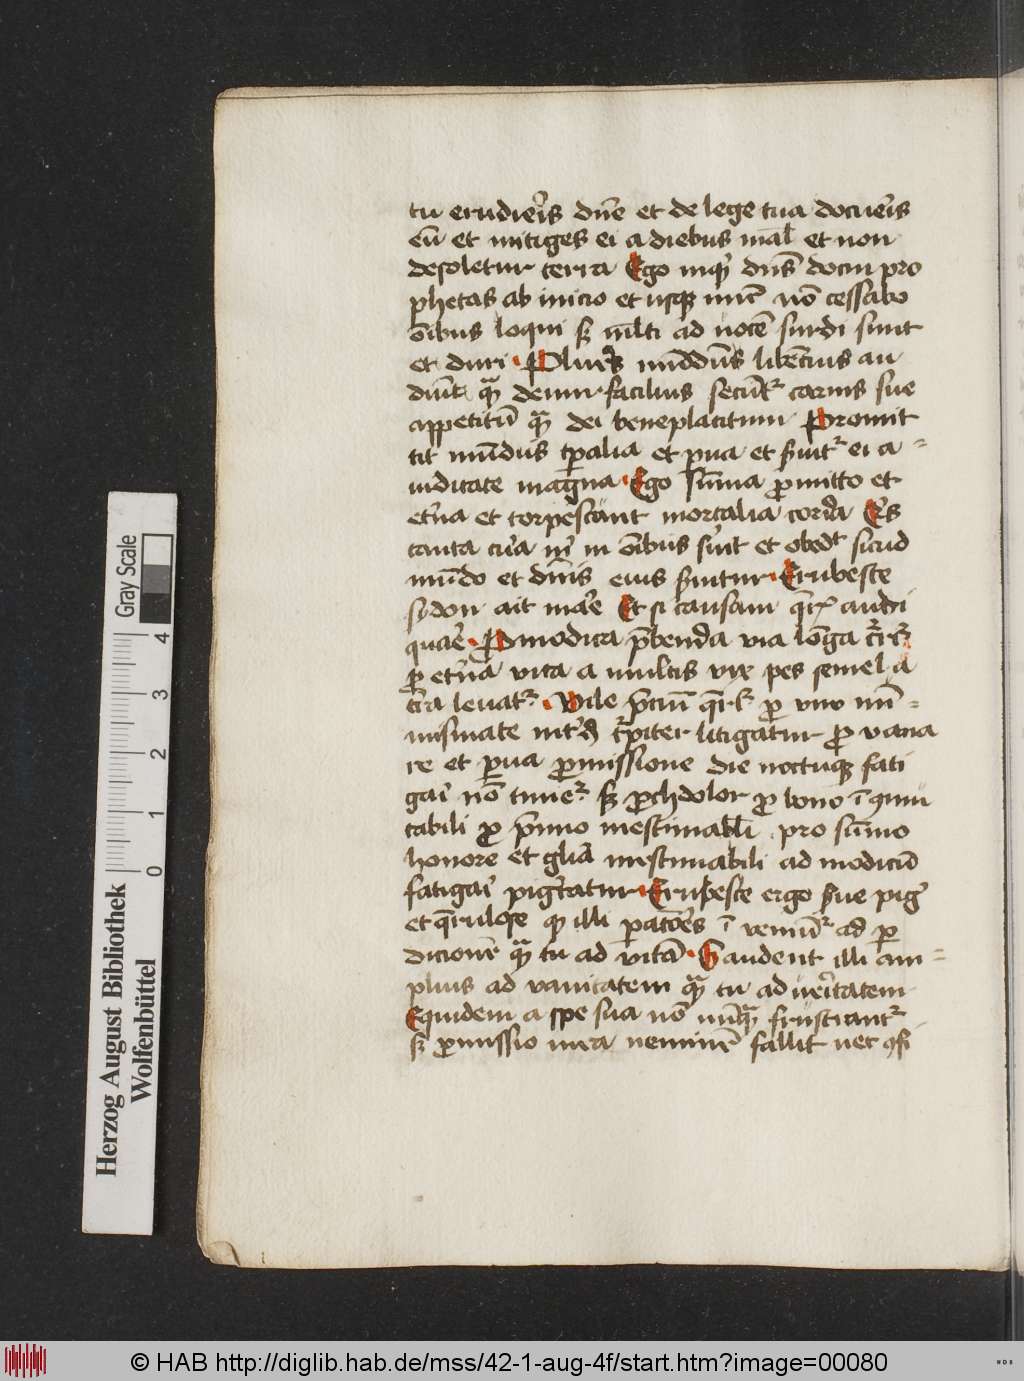 tu erudieris dn̄e et de lege tua docueris
eū et mitiges ei a diebus mal̄ et non
desoletur terra Ego inq̇ dn̄s docui pro
phetas ab inicio et usqꝫ nūc nō cessabo
ōibus loqui sꝫ m̄lti ad uocē surdi sunt
et duri Plures mūdūs libēcius au
diūt qᷓ deum facilius secūt᷑ carnis sue
appetitū qᷓ dei beneplacitum Promit
tit mūdus tp̄alia et pͣua et s̄uit᷑ ei a
uiditate magna Ego sūma ꝓmitto et
et̄na et torpescunt mortalia corda Q̇s
tanta cura m̄ in ōibus s̄uit et obedt sicud
mūdo et dn̄is eius s̄uitur Erubesce
sydon ait mare Et si causam qͥr̄ audi
quare Pmodica p̄benda via lōga c̄rit᷑
ꝓ et̄na vita a multis vix pes semel a
t̄ra leuat᷑ Vile p̄ciū q̄rit᷑ ꝓ vno nū
mismate int̄dū t᷑piter litigatur ꝓ vana
re et ꝑua ꝓmissione die noctuqꝫ fati
gari nō time᷑ sꝫ ꝓchdolor ꝓ bono īcōmu
tabili ꝓ p̄mio inestimabili pro sūmo
honore et gl̄ia inestimabili ad modicū
fatigari pigritatur Erubesce ergo s̄ue pig̑
et q̄rulose qꝫ illi paͣtōes īveniūt᷑ ad ꝑ
dicionē qᷓ tu ad vitā Gaudent illi am
plius ad vanitatem qᷓ tu ad ueritatem
Equidem a spe sua nō nūqᷓ frustrant᷑
sꝫ ꝓmissio mea neminē fallit nec qͦfi
Gray Scale
4 3 2 1 0
Herzog August Bibliothek
Wolfenbüttel
© HAB http://diglib.hab.de/mss/42-1-aug-4f/start.htm?image=00080